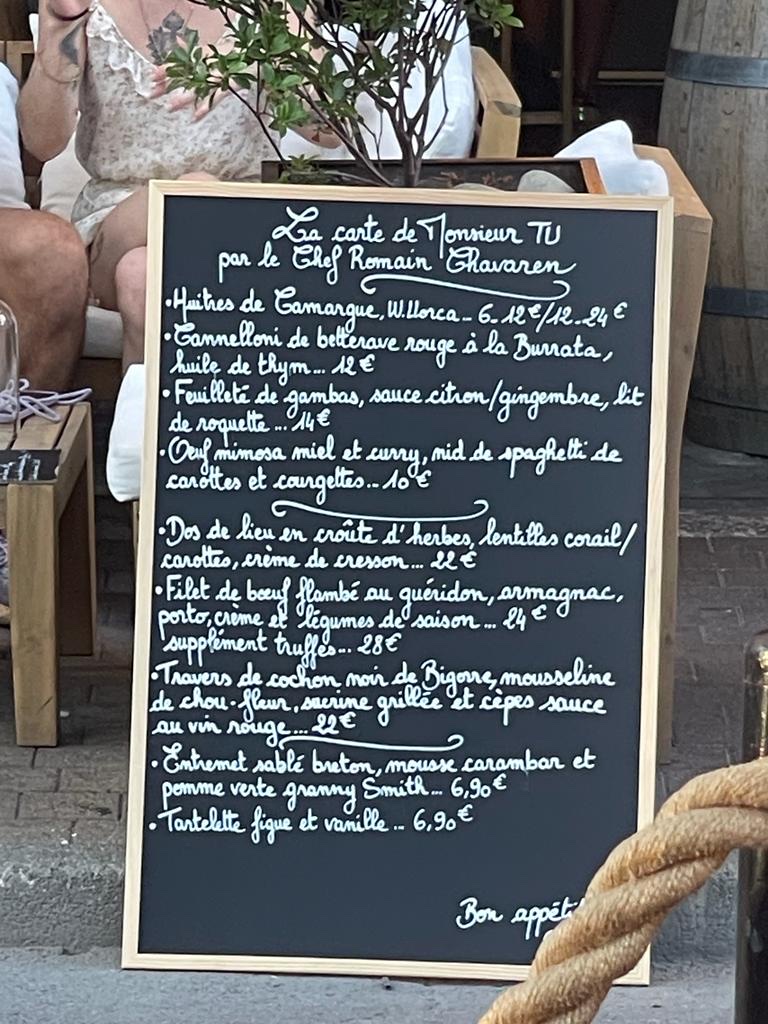 La carte de Monsieur TU
par le Chef Romain Chavaren
• Huitres de Camargue, W. Llorca... 6_12€/12_24€
• Cannelloni de betterave rouge à la Burrata,
huile de thym... 12€
• Feuilleté de gambas, sauce citron/gingembre, lit
de roquette... 14€
• Oeuf mimosa miel et curry, nid de spaghetti de
carottes et courgettes... 10€
• Dos de lieu en croûte d'herbes, lentilles corail/
carottes, crème de cresson... 22€
• Filet de bœuf flambé au guéridon, armagnac,
porto, crème et légumes de saison... 24€
supplément truffes... 28€
• Travers de cochon noir de Bigorre, mousseline
de chou-fleur, sucrine grillée et cèpes sauce
au vin rouge... 22€
• Entremet sablé breton, mousse carambar et
pomme verte granny Smith... 6,90€
• Tartelette figue et vanille... 6,90€
Bon appéti